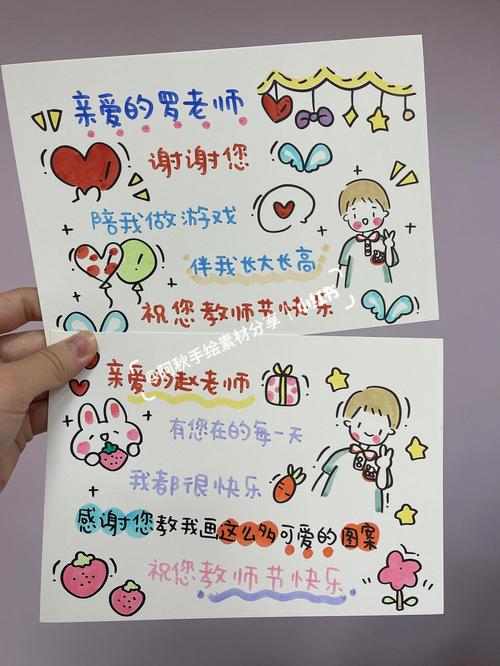 亲爱的罗老师
谢谢您
陪我做游戏
伴我长大长高
祝您教师节快乐
@阿秋手绘素材分享 小红书
亲爱的赵老师
有您在的每一天
我都很快乐
感谢您教我画这么多可爱的图案
祝您教师节快乐